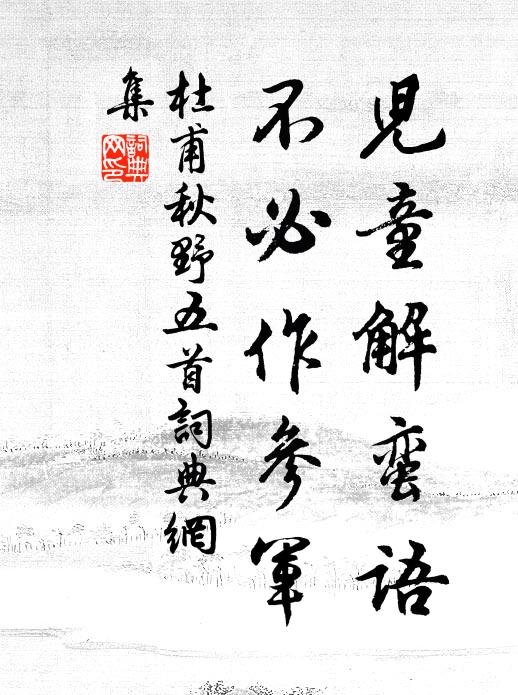 兒童解蛮語
不必作參軍
杜甫秋野五首詞典網
集
詞典
网印